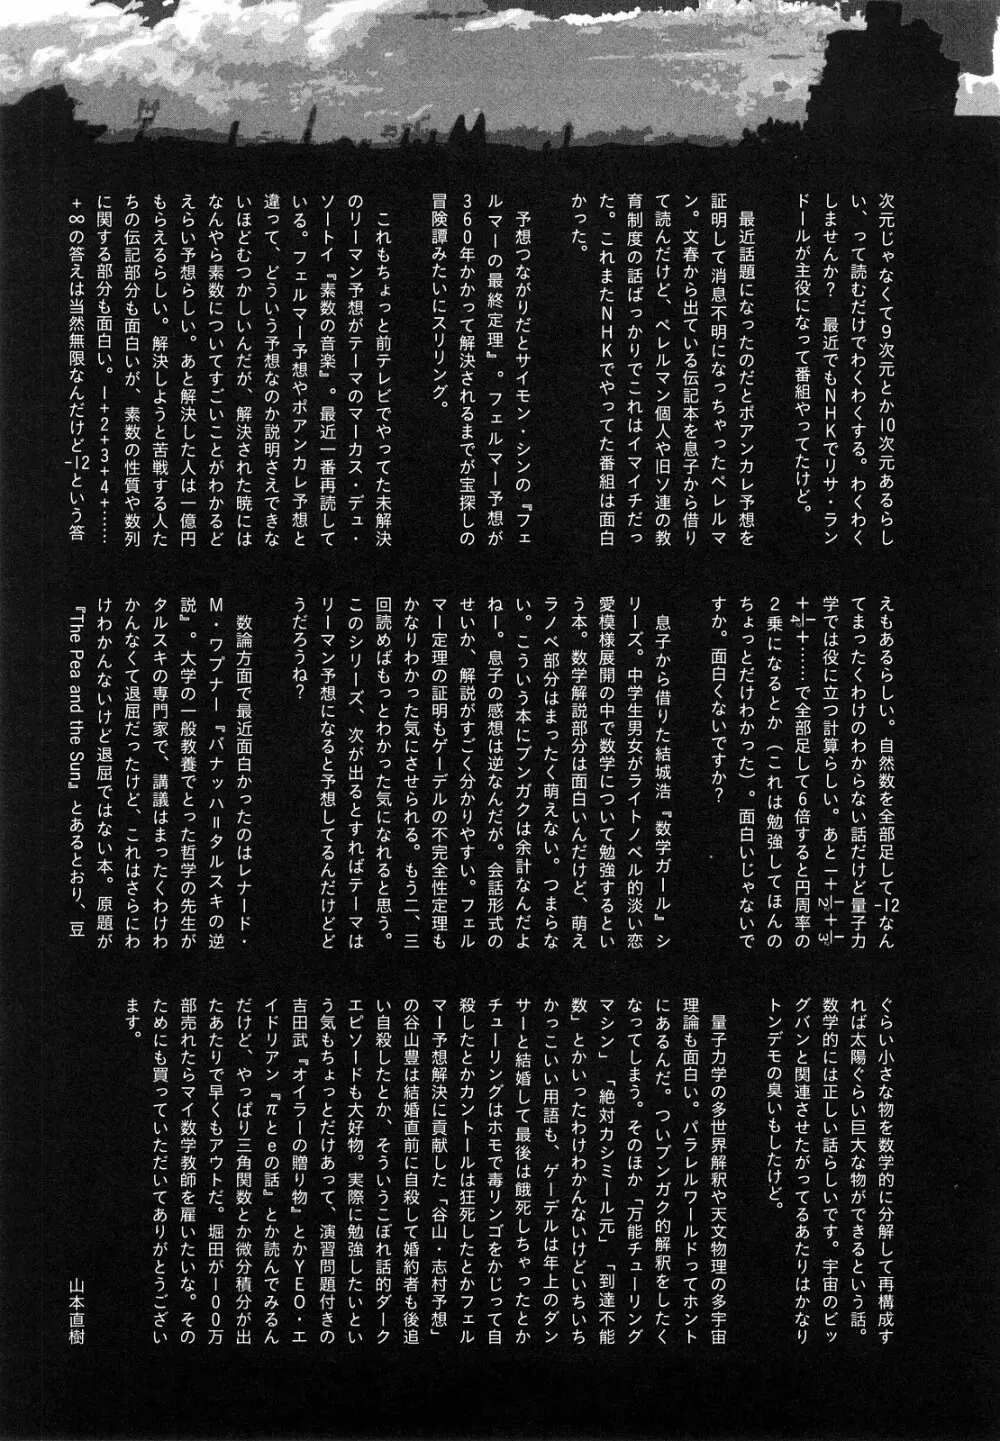 次元じゃなくて9次元とか10次元あるらし
い、って読むだけでわくわくする。わくわく
しませんか？　最近でもNHKでリサ・ラン
ドールが主役になって番組やってたけど。
　最近話題になったのだとポアンカレ予想を
証明して消息不明になっちゃったペレルマ
ン。文春から出ている伝記本を息子から借り
て読んだけど、ペレルマン個人や旧ソ連の教
育制度の話ばっかりでこれはイマイチだっ
た。これまたNHKでやってた番組は面白
かった。
　予想つながりだとサイモン・シンの『フェ
ルマーの最終定理』。フェルマー予想が
360年かかって解決されるまでが宝探しの
冒険譚みたいにスリリング。
　これもちょっと前テレビでやってた未解決
のリーマン予想がテーマのマーカス・デュ・
ソートイ『素数の音楽』。最近一番再読して
いる。フェルマー予想やポアンカレ予想と
違って、どういう予想なのか説明さえできな
いほどむつかしいんだが、解決された暁には
なんやら素数についてすごいことがわかるど
えらい予想らしい。あと解決した人は一億円
もらえるらしい。解決しようと苦戦する人た
ちの伝記部分も面白いが、素数の性質や数列
に関する部分も面白い。1+2+3+4+……
+∞の答えは当然無限なんだけど-12という答
えもあるらしい。自然数を全部足して-12なん
てまったくわけのわからない話だけど量子力
学では役に立つ計算らしい。あと1+1/2²+1/3²
+1/4²+……で全部足して6倍すると円周率の
2乗になるとか（これは勉強してほんの
ちょっとだけわかった）。面白いじゃないで
すか。面白くないですか？
　息子から借りた結城浩『数学ガール』シ
リーズ。中学生男女がライトノベル的淡い恋
愛模様展開の中で数学について勉強するとい
う本。数学解説部分は面白いんだけど、萌え
ラノベ部分はまったく萌えない。つまらな
い。こういう本にブンガクは余計なんだよ
ねー。息子の感想は逆なんだが。会話形式の
せいか、解説がすごく分かりやすい。フェル
マー定理の証明もゲーデルの不完全性定理も
かなりわかった気にさせられる。もう二、三
回読めばもっとわかった気になれると思う。
このシリーズ、次が出るとすればテーマは
リーマン予想になると予想してるんだけどど
うだろうね？
　数論方面で最近面白かったのはレナード・
M・ワプナー『バナッハ=タルスキの逆
説』。大学の一般教養でとった哲学の先生が
タルスキの専門家で、講議はまったくわけわ
かんなくて退屈だったけど、これはさらにわ
けわかんないけど退屈ではない本。原題が
『The Pea and the Sun』とあるとおり、豆
ぐらい小さな物を数学的に分解して再構成す
れば太陽ぐらい巨大な物ができるという話。
数学的には正しい話らしいです。宇宙のビッ
グバンと関連させたがってるあたりはかなり
トンデモの臭いもしたけど。
　量子力学の多世界解釈や天文物理の多宇宙
理論も面白い。パラレルワールドってホント
にあるんだ。ついブンガク的解釈をしたく
なってしまう。そのほか「万能チューリング
マシン」「絶対カシミール元」「到達不能
数」とかいったわけわかんないけどいちいち
かっこいい用語も、ゲーデルは年上のダン
サーと結婚して最後は餓死しちゃったとか
チューリングはホモで毒リンゴをかじって自
殺したとかカントールは狂死したとかフェル
マー予想解決に貢献した「谷山・志村予想」
の谷山豊は結婚直前に自殺して婚約者も後追
い自殺したとか、そういうこぼれ話的ダーク
エピソードも大好物。実際に勉強したいとい
う気もちょっとだけあって、演習問題付きの
吉田武『オイラーの贈り物』とかYEO・エ
イドリアン『πとeの話』とか読んでみるん
だけど、やっぱり三角関数とか微分積分が出
たあたりで早くもアウトだ。堀田が100万
部売れたらマイ数学教師を雇いたいな。その
ためにも買っていただいてありがとうござい
ます。
山本直樹